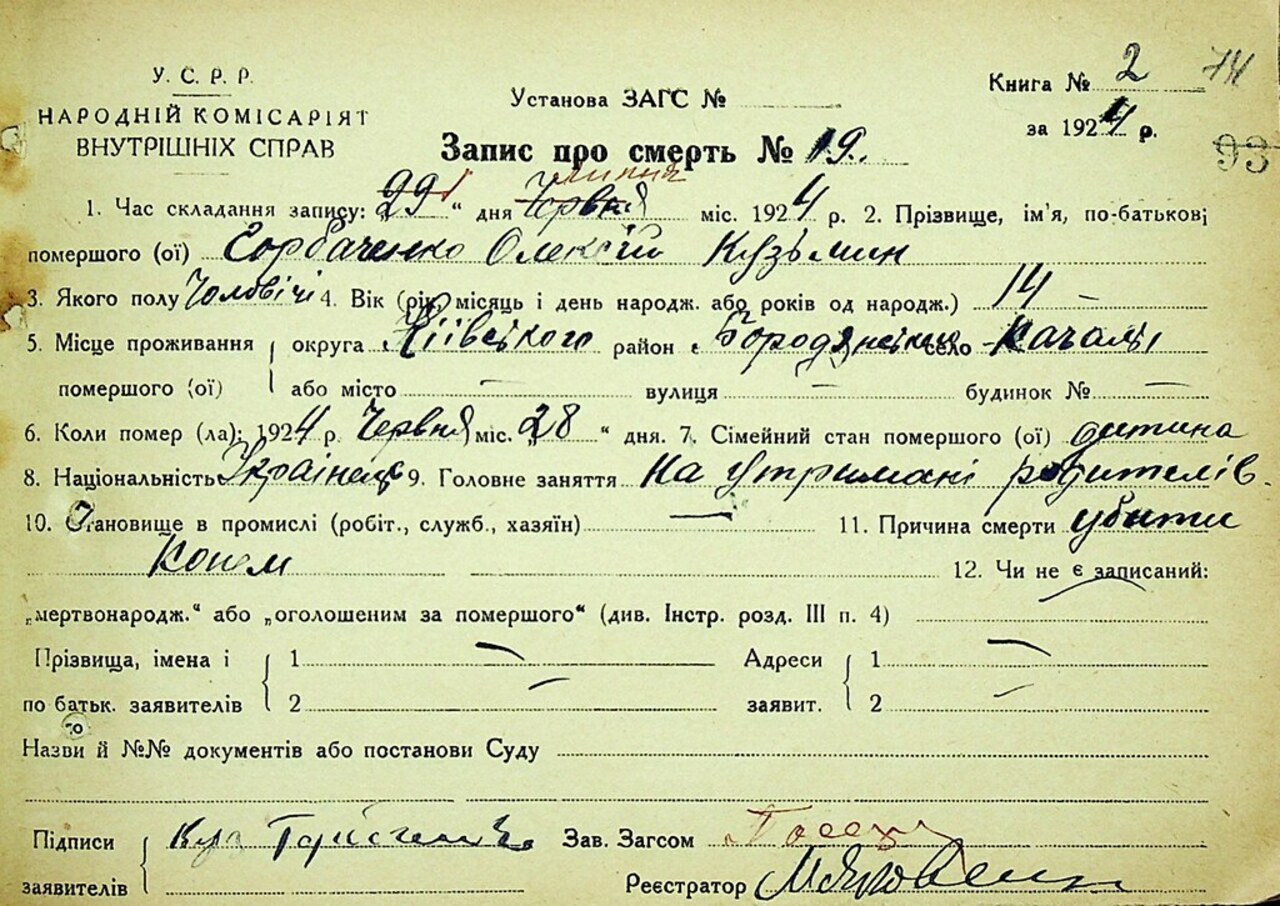 У. С. Р. Р.
НАРОДНІЙ КОМІСАРІЯТ
ВНУТРІШНІХ СПРАВ
Установа ЗАГС №
Книга № 2 74
за 1924 р.
93
Запис про смерть № 19.
1. Час складання запису: 29 1 “ дня Червня липня міс. 1924 р. 2. Прізвище, ім'я, по-батькові
помершого (ої) Горбаченко Олексій Кузьмин
3. Якого полу Чоловічі 4. Вік (рік, місяць і день народж. або років од народж.) 14 –
5. Місце проживання округа Київського район Бородянський село Качалі
помершого (ої) або місто – вулиця – будинок № –
6. Коли помер (ла): 1924 р. Червня міс. „28“ дня. 7. Сімейний стан помершого (ої) дитина
8. Національність Українець 9. Головне заняття На утримані родителів.
10. Становище в промислі (робіт., служб., хазяїн) – 11. Причина смерти убити
Конем 12. Чи не є записаний:
„мертвонародж.“ або „оголошеним за помершого“ (див. Інстр. розд. III п. 4)
Прізвища, імена і 1 – Адреси 1 –
по батьк. заявителів 2 – заявит. 2 –
Назви й №№ документів або постанови Суду
Підписи Зав. Загсом
заявителів Реєстратор